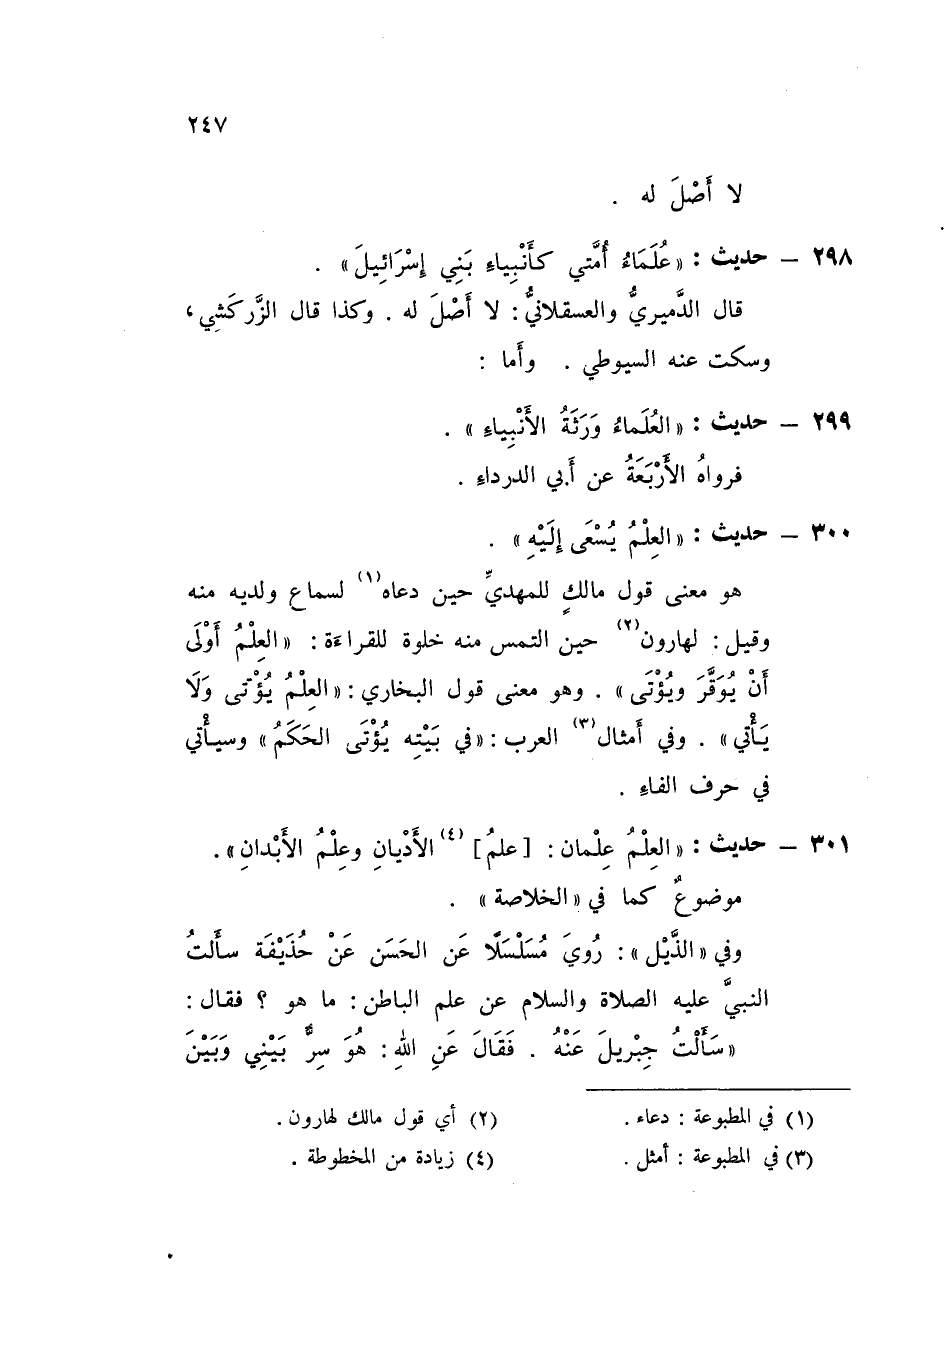 ٢٤٧
لا أَصْلَ له .
٢٩٨ – حديث : «عُلَمَاءُ أُمَّتي كأَنْبِياءِ بَنِي إِسْرَائِيلَ» .
قال الدَّميريُّ والعسقلانيُّ : لا أَصْلَ له . وكذا قال الزَّركَشي ،
وسكت عنه السيوطي . وأَما :
٢٩٩ – حديث : «العُلَماءُ وَرَثَةُ الأَنْبِياءِ» .
فرواهُ الأَرْبَعَةُ عن أَبي الدرداءِ .
٣٠٠ – حديث : «العِلْمُ يُسْعَى إِلَيْهِ» .
هو معنى قول مالكٍ للمهديِّ حين دعاه(١) لسماع ولديه منه
وقيل : لهارون(٢) حين التمس منه خلوة للقراءة : «العِلْمُ أَوْلَى
أَنْ يُوَقَّرَ ويُؤْتَى» . وهو معنى قول البخاري : «العِلْمُ يُؤْتى وَلَا
يَأْتي» . وفي أَمثال(٣) العرب : «في بَيْتِه يُؤْتَى الحَكَمُ» وسيأْتي
في حرف الفاءِ .
٣٠١ – حديث : «العِلْمُ عِلْمان : [علمُ](٤) الأَدْيانِ وعِلْمُ الأَبْدانِ» .
موضوعٌ كما في «الخلاصة» .
وفي «الذَّيْل» : رُويَ مُسَلْسَلًا عَن الحَسَن عَنْ حُذَيْفَة سأَلتُ
النبيَّ عليه الصلاة والسلام عن علم الباطن : ما هو ؟ فقال :
«سَأَلْتُ جِبْريلَ عَنْهُ . فَقَالَ عَنِ اللهِ : هُوَ سِرٌّ بَيْنِي وَبَيْنَ
(١) في المطبوعة : دعاء . (٢) أي قول مالك لهارون .
(٣) في المطبوعة : أمثل . (٤) زيادة من المخطوطة .